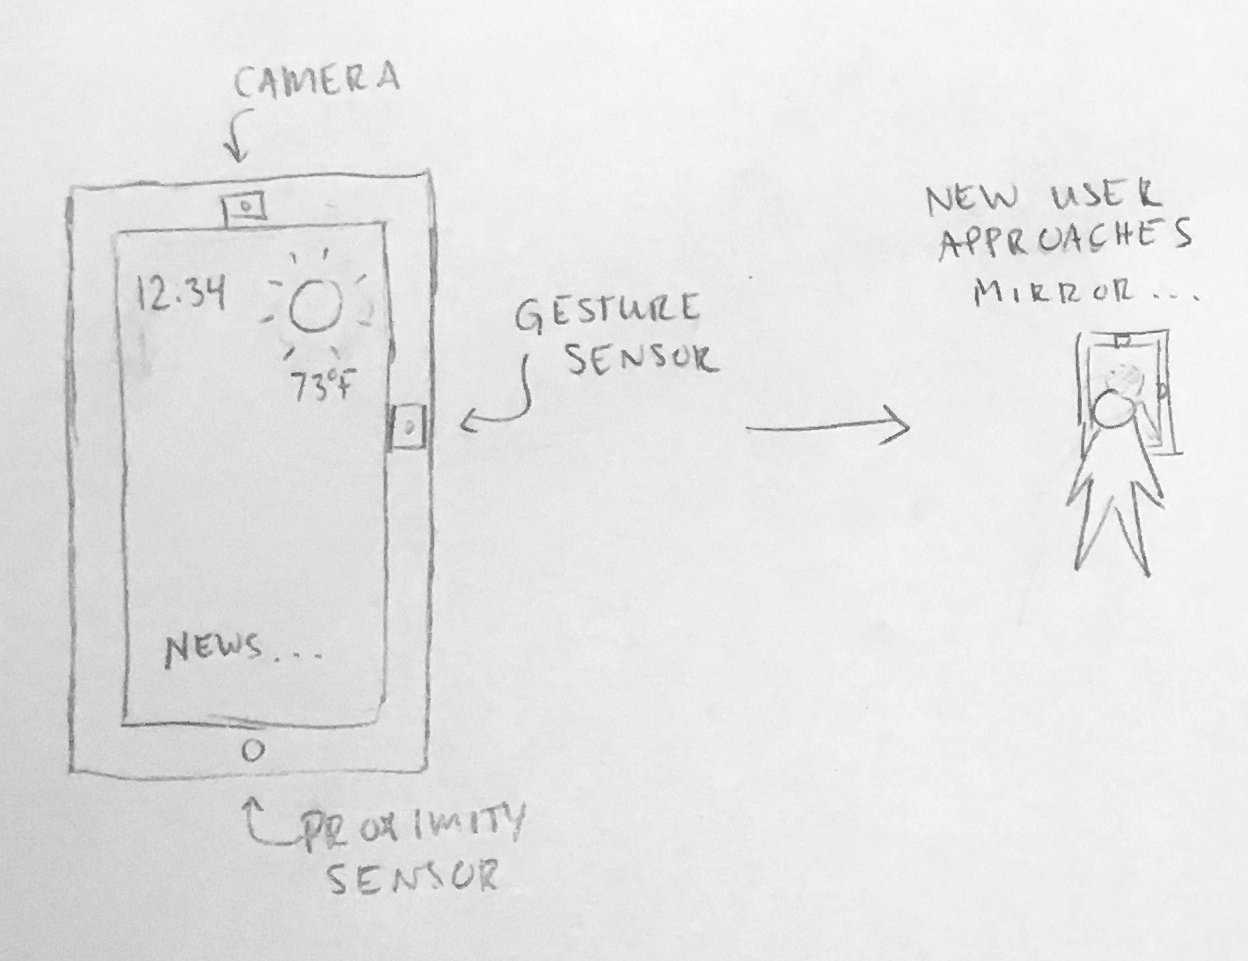 CAMERA
12:34
73°F
GESTURE
SENSOR
NEWS...
PROXIMITY
SENSOR
NEW USER
APPROACHES
MIRROR...